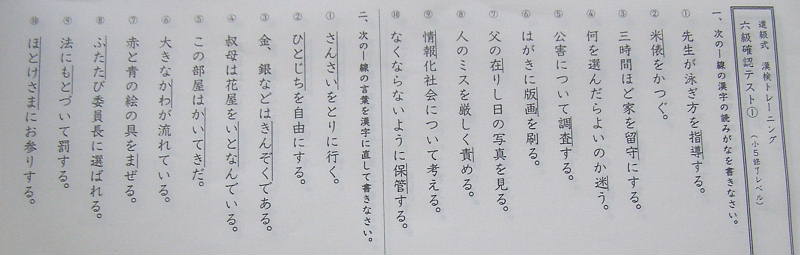 道級式 漢検トレーニング
六級確認テスト①
(小5終了レベル)
一、次の━線の漢字の読みがなを書きなさい。
① 先生が泳ぎ方を指導する。
② 米俵をかつぐ。
③ 三時間ほど家を留守にする。
④ 何を選んだらよいのか迷う。
⑤ 公害について調査する。
⑥ はがきに版画を刷る。
⑦ 父の在りし日の写真を見る。
⑧ 人のミスを厳しく責める。
⑨ 情報化社会について考える。
⑩ なくならないように保管する。
二、次の━線の言葉を漢字に直して書きなさい。
① さんさいをとりに行く。
② ひとじちを自由にする。
③ 金、銀などはきんぞくである。
④ 叔母は花屋をいとなんでいる。
⑤ この部屋はかいてきだ。
⑥ 大きなかわが流れている。
⑦ 赤と青の絵の具をまぜる。
⑧ ふたたび委員長に選ばれる。
⑨ 法にもとづいて罰する。
⑩ ほとけさまにお参りする。